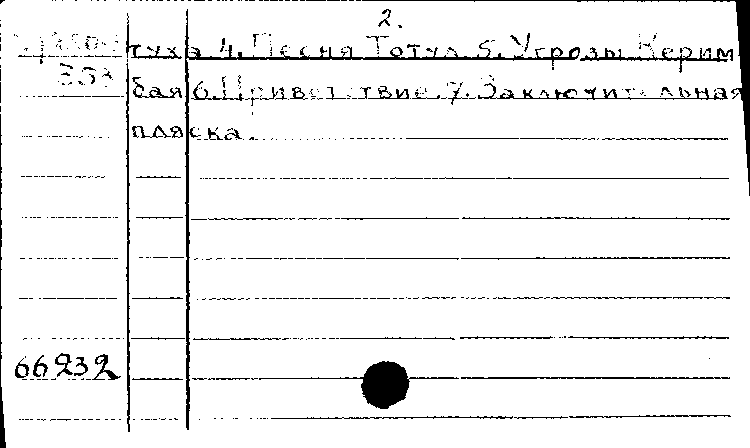 2.
туха 4. Песня Тотул 5. Угрозы Керим
353
бая 6. Приветствие. 7. Заключительная
пляска.
66232